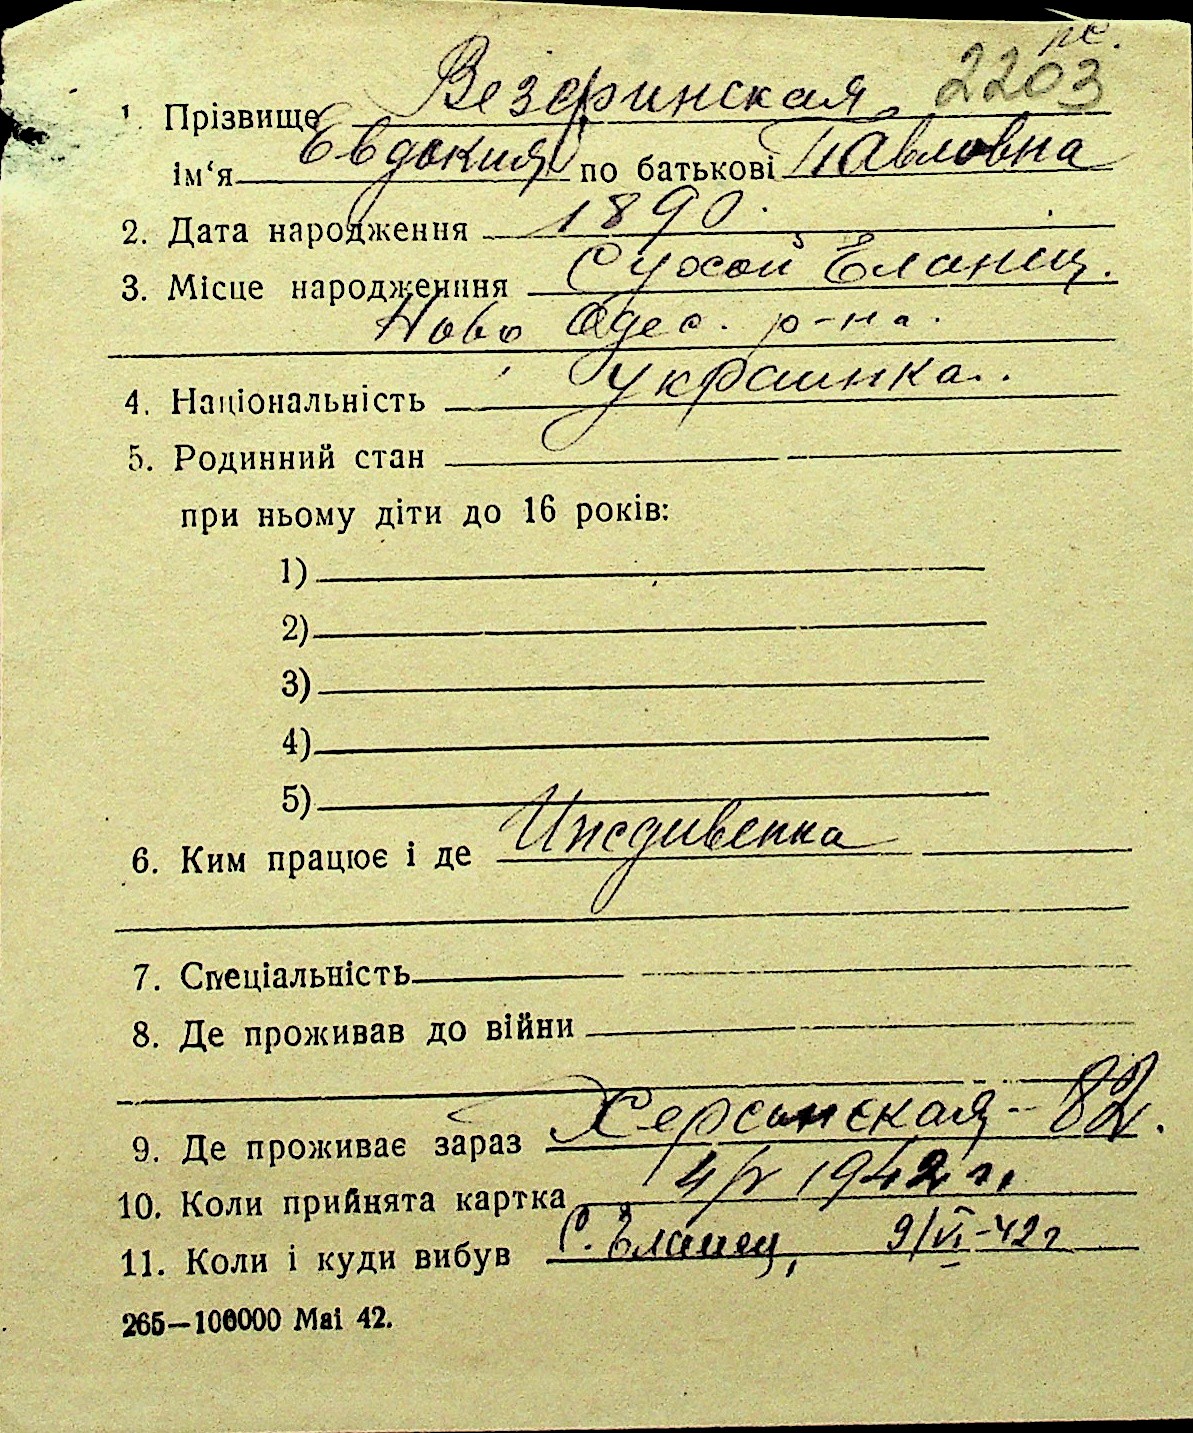 рс.
2203
1. Прізвище Везеринская
ім‘я Евдокия по батькові Павловна
2. Дата народження 1890.
3. Місце народження Сухой Еланец.
Ново Одес. р-на.
4. Національність украинка.
5. Родинний стан
при ньому діти до 16 років:
1)
2)
3)
4)
5)
6. Ким працює і де Иждивенка
7. Спеціальність
8. Де проживав до війни
9. Де проживає зараз Херсонская - 82.
10. Коли прийнята картка 4/V 1942 г.
11. Коли і куди вибув С. Еланец, 9/VI-42 г
265—100000 Mai 42.